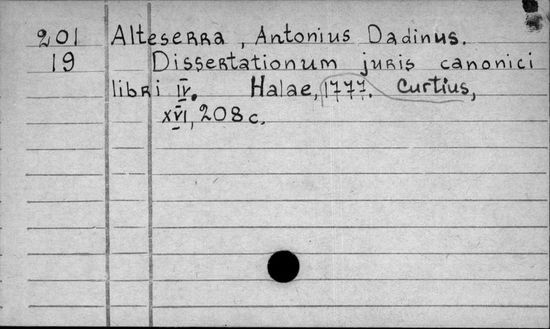 201 Alteserra, Antonius Dadinus.
19 Dissertationum juris canonici
libri IV. Halae, 1777. Curtius,
XVI, 208 c.